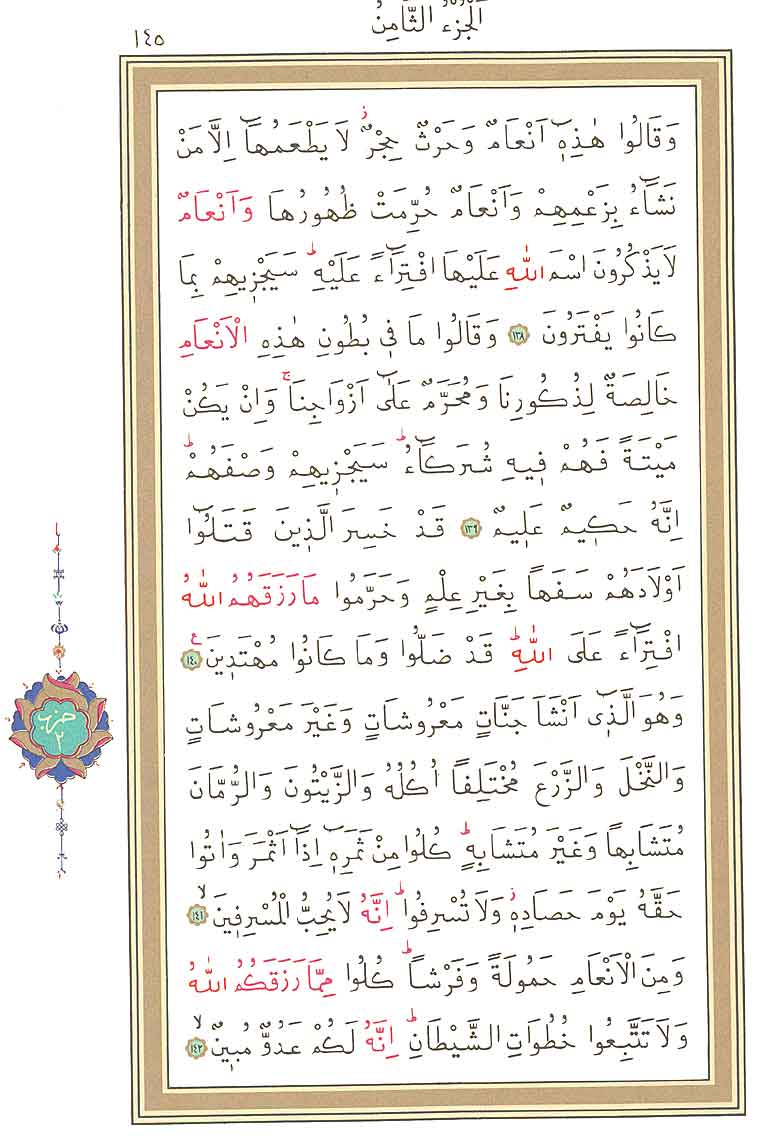 اَلْجُزْءُ الثَّامِنُ
١٤٥
وَقَالُوا هٰذِهٖٓ اَنْعَامٌ وَحَرْثٌ حِجْرٌۘ لَا يَطْعَمُهَٓا اِلَّا مَنْ
نَشَٓاءُ بِزَعْمِهِمْ وَاَنْعَامٌ حُرِّمَتْ ظُهُورُهَا وَاَنْعَامٌ
لَا يَذْكُرُونَ اسْمَ اللّٰهِ عَلَيْهَا افْتِرَٓاءً عَلَيْهِؕ سَيَجْزٖيهِمْ بِمَا
كَانُوا يَفْتَرُونَ ﴿١٣٨﴾ وَقَالُوا مَا فٖي بُطُونِ هٰذِهِ الْاَنْعَامِ
خَالِصَةٌ لِذُكُورِنَا وَمُحَرَّمٌ عَلٰٓى اَزْوَاجِنَاۚ وَاِنْ يَكُنْ
مَيْتَةً فَهُمْ فٖيهِ شُرَكَٓاءُؕ سَيَجْزٖيهِمْ وَصْفَهُمْؕ
اِنَّهُ حَكٖيمٌ عَلٖيمٌ ﴿١٣٩﴾ قَدْ خَسِرَ الَّذٖينَ قَتَلُٓوا
اَوْلَادَهُمْ سَفَهاً بِغَيْرِ عِلْمٍ وَحَرَّمُوا مَا رَزَقَهُمُ اللّٰهُ
افْتِرَٓاءً عَلَى اللّٰهِؕ قَدْ ضَلُّوا وَمَا كَانُوا مُهْتَدٖينَ ع ﴿١٤٠﴾
وَهُوَ الَّذٖٓي اَنْشَاَ جَنَّاتٍ مَعْرُوشَاتٍ وَغَيْرَ مَعْرُوشَاتٍ
وَالنَّخْلَ وَالزَّرْعَ مُخْتَلِفاً اُكُلُهُ وَالزَّيْتُونَ وَالرُّمَّانَ
مُتَشَابِهاً وَغَيْرَ مُتَشَابِهٍؕ كُلُوا مِنْ ثَمَرِهٖٓ اِذَٓا اَثْمَرَ وَاٰتُوا
حَقَّهُ يَوْمَ حَصَادِهٖؗ وَلَا تُسْرِفُواؕ اِنَّهُ لَا يُحِبُّ الْمُسْرِفٖينَۙ ﴿١٤١﴾
وَمِنَ الْاَنْعَامِ حَمُولَةً وَفَرْشاًؕ كُلُوا مِمَّا رَزَقَكُمُ اللّٰهُ
وَلَا تَتَّبِعُوا خُطُوَاتِ الشَّيْطَانِؕ اِنَّهُ لَكُمْ عَدُوٌّ مُبٖينٌۙ ﴿١٤٢﴾
حزب
٢